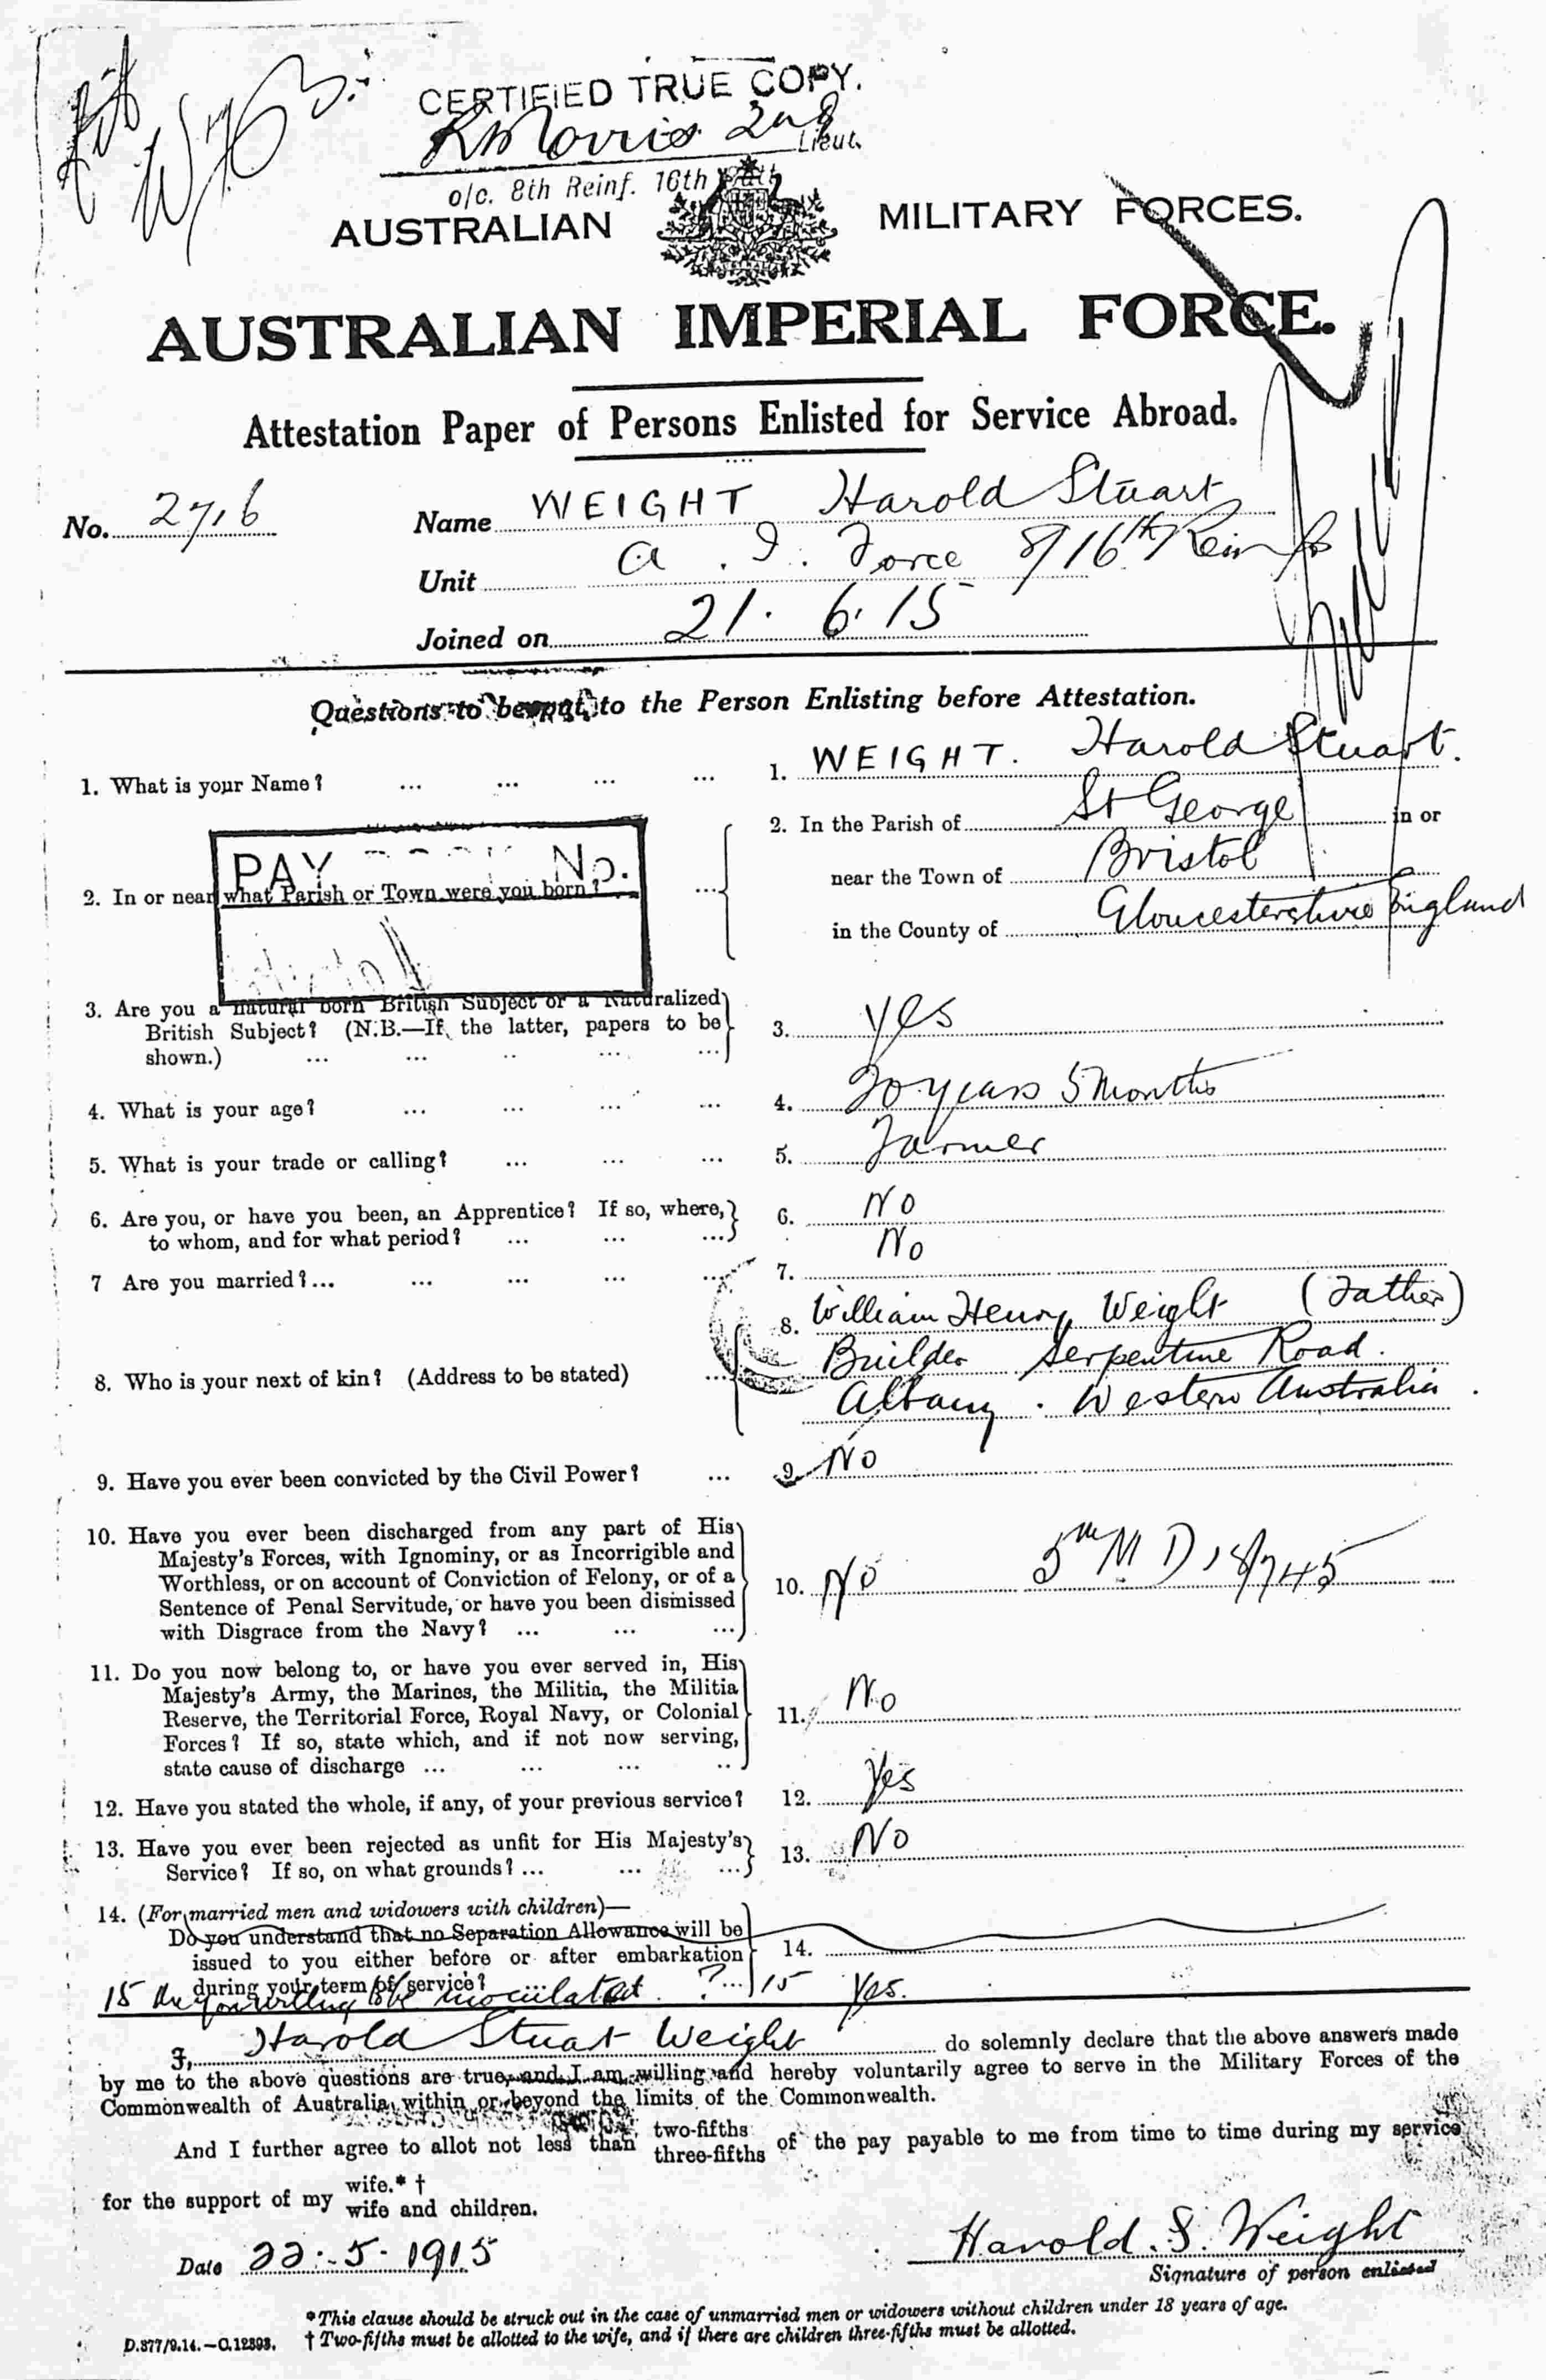 CERTIFIED TRUE COPY.
Lieut.
o/c. 8th Reinf. 16th Batt
AUSTRALIAN MILITARY FORCES.
AUSTRALIAN IMPERIAL FORCE.
Attestation Paper of Persons Enlisted for Service Abroad.
No. 2716 Name WEIGHT Harold Stuart
Unit A. I. Force 8/16th Reinfs
Joined on 21. 6. 15
Questions to be put to the Person Enlisting before Attestation.
1. What is your Name? ... ... ... ... 1. WEIGHT. Harold Stuart.
2. In or near what Parish or Town were you born? ... 2. In the Parish of St George in or
near the Town of Bristol
in the County of Gloucestershire England
PAY No.
3. Are you a natural born British Subject or a Naturalized
British Subject? (N.B.—If the latter, papers to be
shown.) ... ... .. ... ... 3. Yes
4. What is your age? ... ... ... ... 4. 20 years 5 Months
5. What is your trade or calling? ... ... ... 5. Farmer
6. Are you, or have you been, an Apprentice? If so, where,
to whom, and for what period? ... ... ... 6. No
7 Are you married?... ... ... ... ... 7. No
8. Who is your next of kin? (Address to be stated) ... 8. William Henry Weight (Father)
Builder Serpentine Road.
Albany. Western Australia.
9. Have you ever been convicted by the Civil Power? ... 9. No
10. Have you ever been discharged from any part of His
Majesty's Forces, with Ignominy, or as Incorrigible and
Worthless, or on account of Conviction of Felony, or of a
Sentence of Penal Servitude, or have you been dismissed
with Disgrace from the Navy? ... ... ... 10. No 5th M D 18/745
11. Do you now belong to, or have you ever served in, His
Majesty's Army, the Marines, the Militia, the Militia
Reserve, the Territorial Force, Royal Navy, or Colonial
Forces? If so, state which, and if not now serving,
state cause of discharge ... ... ... .. 11. No
12. Have you stated the whole, if any, of your previous service? 12. Yes
13. Have you ever been rejected as unfit for His Majesty's
Service? If so, on what grounds? ... ... ... 13. No
14. (For married men and widowers with children)—
Do you understand that no Separation Allowance will be
issued to you either before or after embarkation
during your term of service? ... ... 14.
15 Are you willing to be inoculated. ? 15 Yes.
I, Harold Stuart Weight do solemnly declare that the above answers made
by me to the above questions are true, and I am willing and hereby voluntarily agree to serve in the Military Forces of the
Commonwealth of Australia within or beyond the limits of the Commonwealth.
And I further agree to allot not less than two-fifths three-fifths of the pay payable to me from time to time during my service
for the support of my wife.* † wife and children.
Date 22.5.1915 Harold. S. Weight
Signature of person enlisted
*This clause should be struck out in the case of unmarried men or widowers without children under 18 years of age.
D.377/9.14.—C.12393. † Two-fifths must be allotted to the wife, and if there are children three-fifths must be allotted.